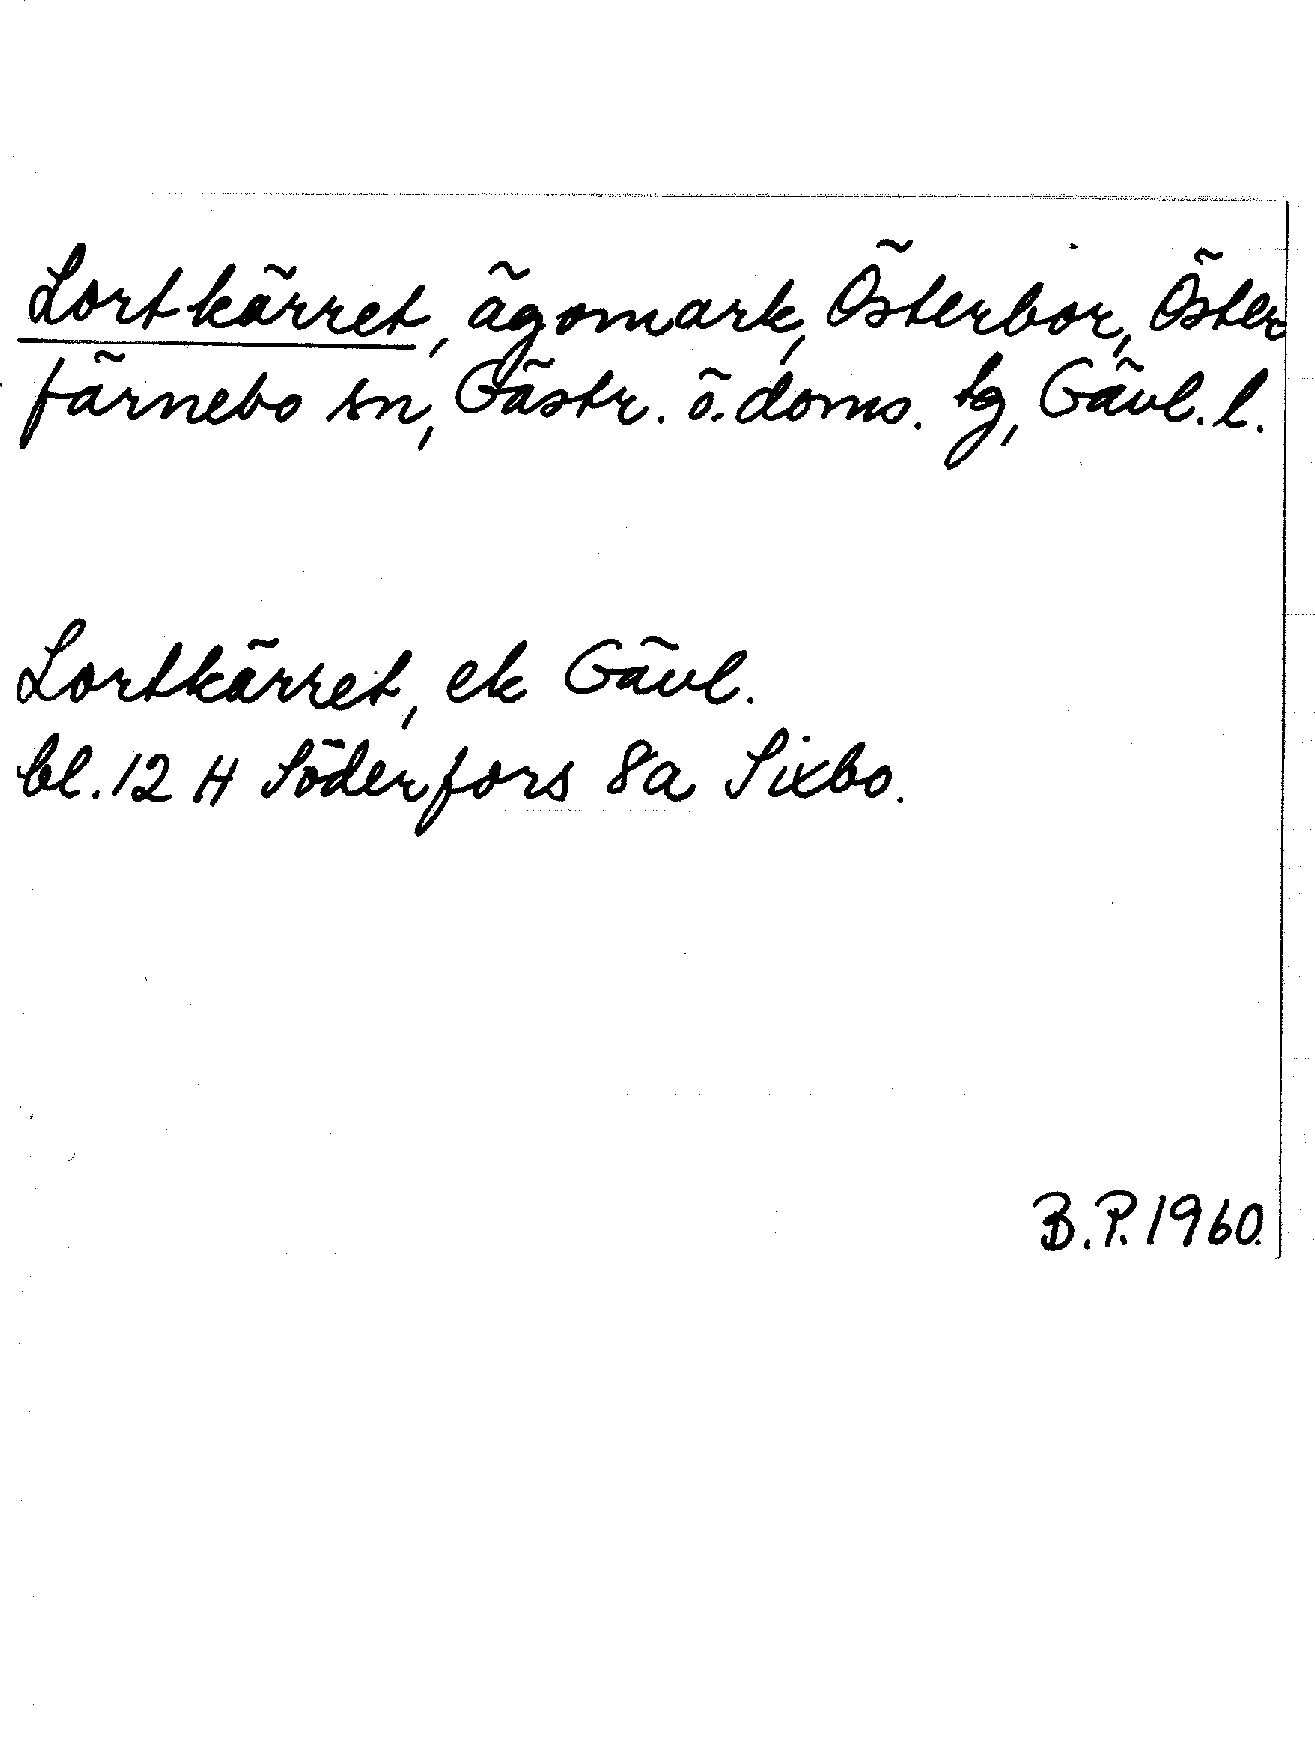 Lortkärret, ägomark, Österbor, Öster
färnebo sn, Gästr. ö. doms. tg, Gävl. l.
Lortkärret, ek Gävl.
bl. 12 H Söderfors 8a Sixbo.
B.P. 1960.